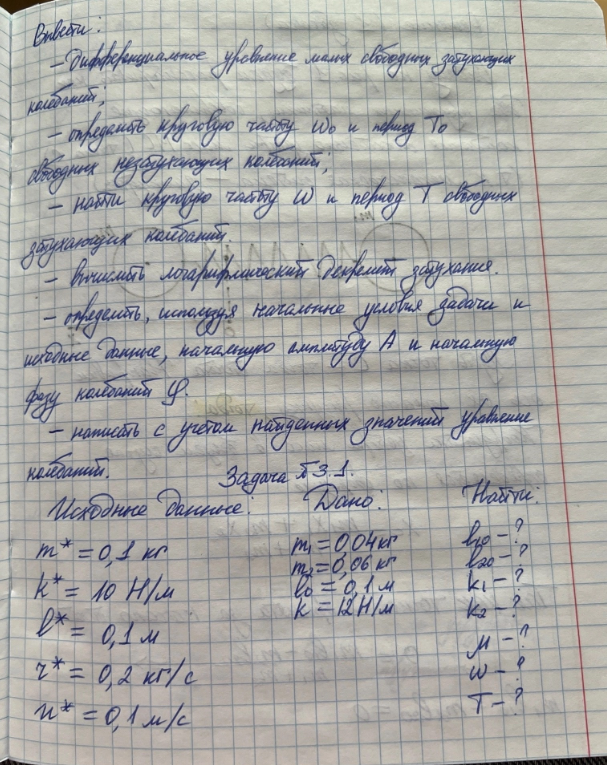 Вывести:
- Дифференциальное уравнение малых свободных затухающих
колебаний;
- определить круговую частоту ω₀ и период T₀
свободных незатухающих колебаний;
- найти круговую частоту ω и период T свободных
затухающих колебаний.
- Вычислить логарифмический декремент затухания.
- определить, используя начальные условия задачи и
исходные данные, начальную амплитуду A и начальную
фазу колебаний φ.
- написать с учетом найденных значений уравнение
колебаний.
Задача П 3.1.
Исходные данные: Дано: Найти:
m* = 0,1 кг m₁ = 0,04 кг l₁₀ - ?
m₂ = 0,06 кг l₂₀ - ?
k* = 10 Н/м l₀ = 0,1 м k₁ - ?
k = 12 Н/м k₂ - ?
l* = 0,1 м
μ - ?
r* = 0,2 кг/с ω - ?
T - ?
u* = 0,1 м/с